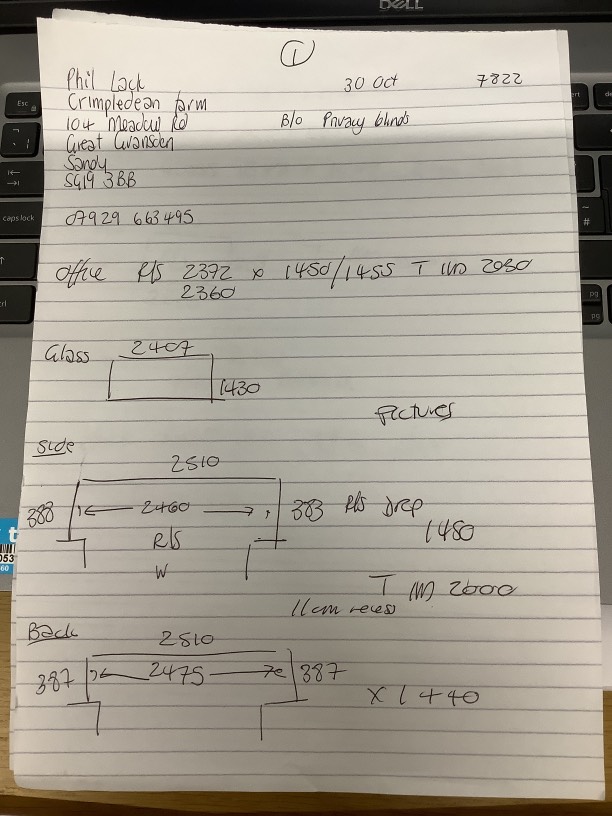 DELL
1
Phil Lack 30 Oct 7822
Crimpledean farm
104 Meadow Rd B/o Privacy blinds
Great Gransden
Sandy
SG19 3BB
07929 663495
Office R/S 2372 x 1450/1455 T 2050
2360
Glass 2407
1430
Pictures
Side
2510
388 2460 383 R/S Drop
R/S 1480
W
T 2600
11cm recess
Back
2510
387 2475 387
x 1440
Esc
caps lock
#
pg
pg